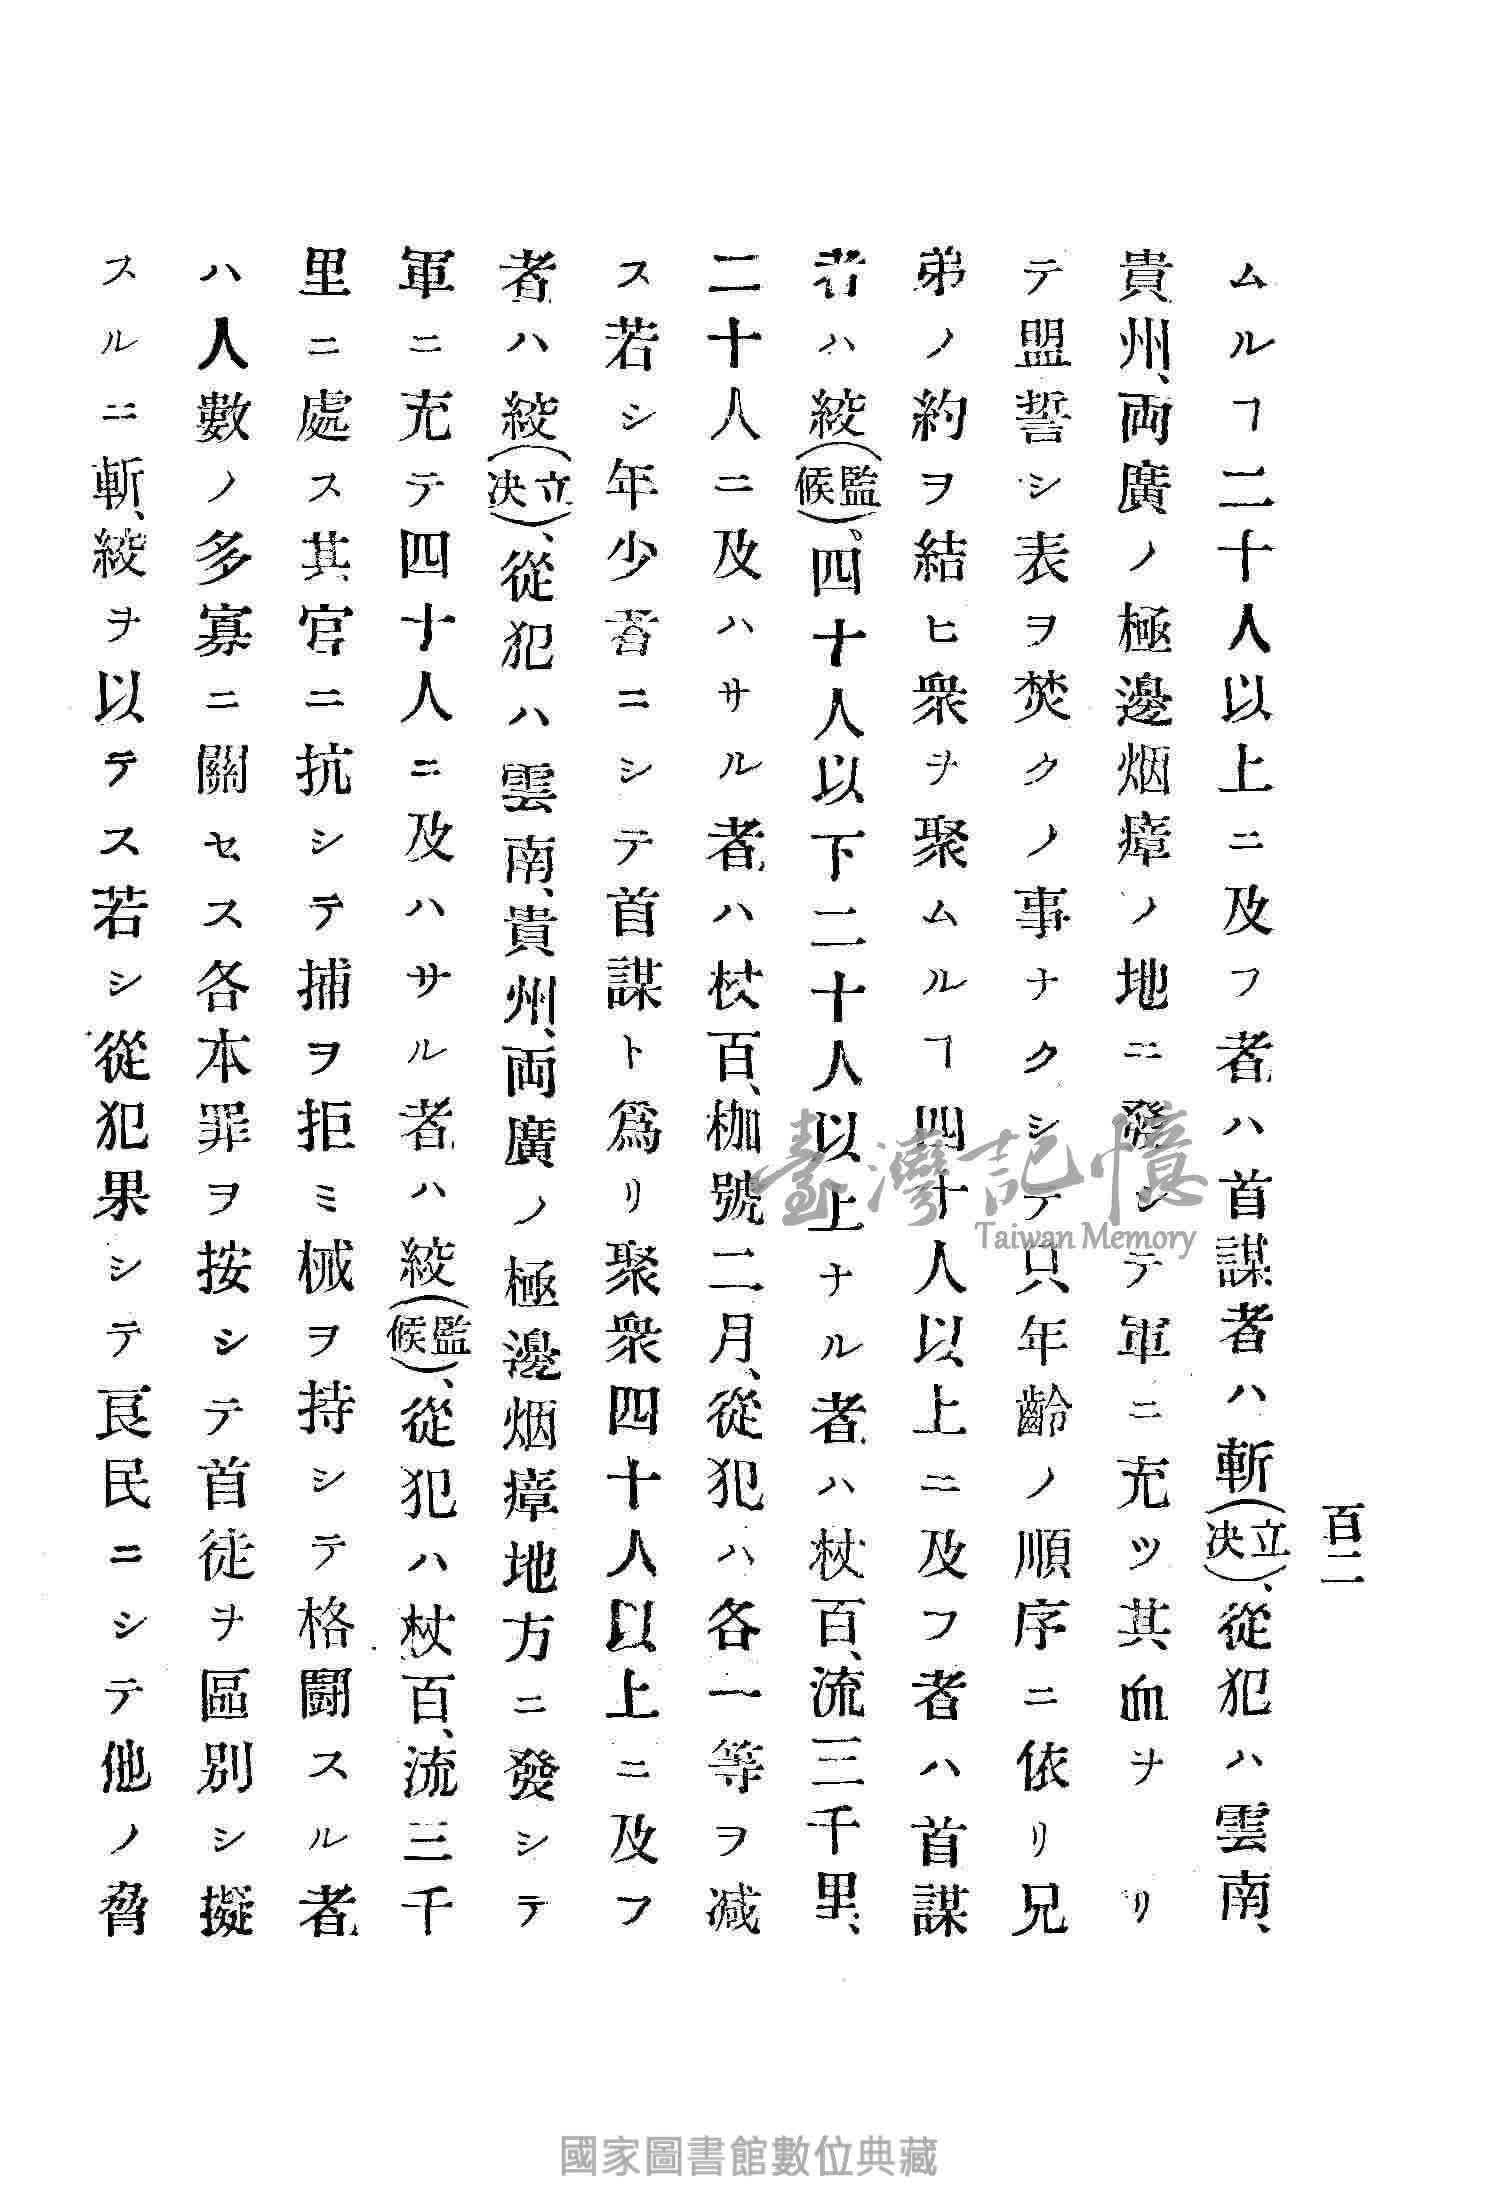 百二
ムルヿ二十人以上ニ及フ者ハ首謀者ハ斬(立決)、從犯ハ雲南、
貴州、両廣ノ極邊烟瘴ノ地ニ發シテ軍ニ充ツ其血ヲリ
テ盟誓シ表ヲ焚クノ事ナクシテ只年齡ノ順序ニ依リ兄
弟ノ約ヲ結ヒ衆ヲ聚ムルヿ四十人以上ニ及フ者ハ首謀
者ハ絞(監候)、四十人以下二十人以上ナル者ハ杖百、流三千里、
二十人ニ及ハサル者ハ杖百、枷號二月、從犯ハ各一等ヲ减
ス若シ年少者ニシテ首謀ト爲リ聚衆四十人以上ニ及フ
者ハ絞(立決)、從犯ハ雲南、貴州、両廣ノ極邊烟瘴地方ニ發シテ
軍ニ充テ四十人ニ及ハサル者ハ絞(監候)、從犯ハ杖百、流三千
里ニ處ス其官ニ抗シテ捕ヲ拒ミ械ヲ持シテ格闘スル者
ハ人數ノ多寡ニ關セス各本罪ヲ按シテ首徒ヲ區別シ擬
スルニ斬、絞ヲ以テス若シ從犯果シテ良民ニシテ他ノ脅
臺灣記憶
Taiwan Memory
國家圖書館數位典藏